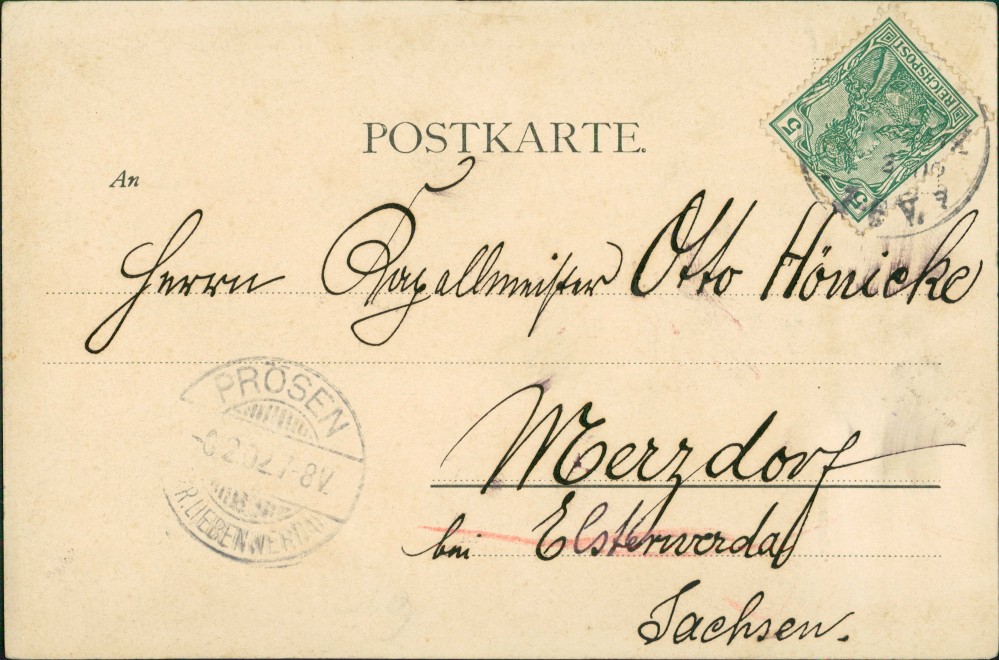 POSTKARTE.
REICHSPOST
5
5
An
Herrn Kapellmeister Otto Hönicke
PRÖSEN
-6.2.02.7-8V.
LIEBENWERDA
Merzdorf
bei Elsterwerda
Sachsen.